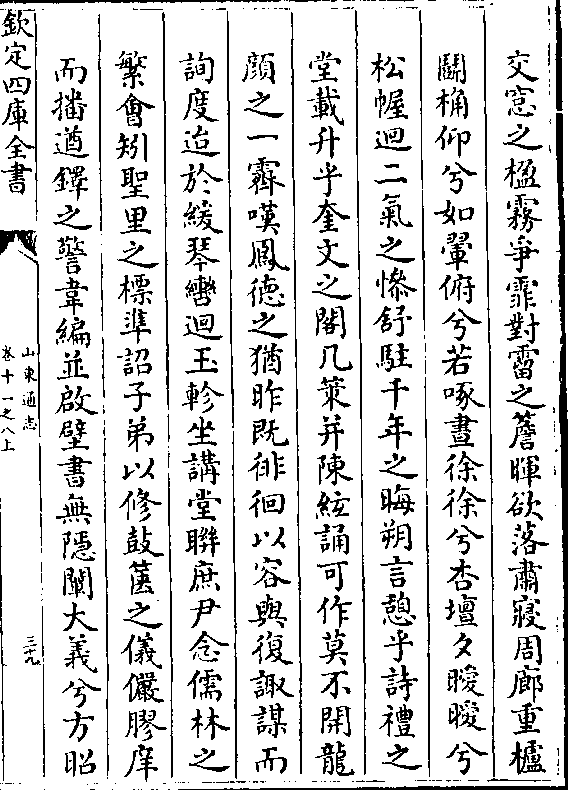 交窓之楹霧爭霏對霤之簷暉欲落肅寢周廊重櫨
鬭桷仰兮如翬俯兮若啄晝徐徐兮杏壇夕曖曖兮
松幄迴二氣之慘舒駐千年之晦朔言憩乎詩禮之
堂載升乎奎文之閣几筞并陳絃誦可作莫不開龍
顔之一霽嘆鳳德之猶昨既徘徊以容與復諏謀而
詢度迨於緩琴轡迴玉軫坐講堂聨庶尹念儒林之
繁會矧聖里之標準詔子弟以修鼓篋之儀儼膠庠
而播遒鐸之警韋編並啟壁書無隱闡大義兮方昭
欽定四庫全書
山東通志
卷十一之八上
三十九